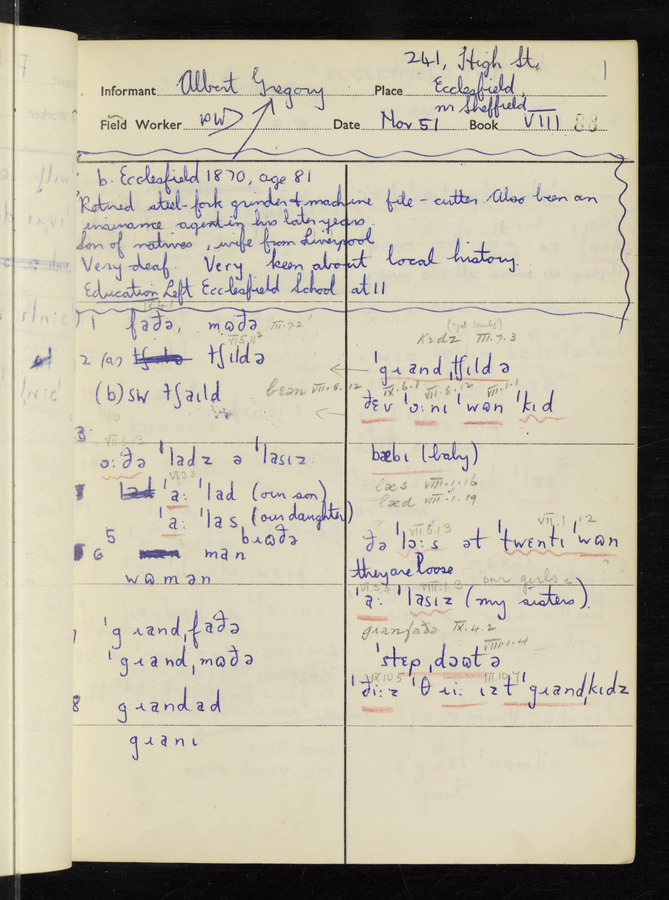 241, High St. 1
Informant Albert Gregory Place Ecclesfield,
nr Sheffield
Field Worker DW Date Nov 51 Book VIII 88
b. Ecclesfield 1870, age 81
Retired steel-fork grinder & machine file-cutter. Also been an
insurance agent in his later years.
Son of natives, wife from Liverpool
Very deaf. Very keen about local history.
Education Left Ecclesfield School at 11
1 faðə, mɷðə III.7.2
2 (a) tʃɪldə
(b) SW tʃaɪld bɛən VIII.8.12
3
VII.6.13
ɔ:ðə 'ladz ə 'lasɪz
'a: 'lad (our son)
'a: 'las (our daughter)
5 bɹɷðə
6 man
wɷmən
7 'gɹand,faðə
'gɹand,mɷðə
8 gɹandad
gɹanɪ
kɪdz III.7.3
'gɹand,tʃɪldə
IX.6.1 VIII.8.12 VII.1.1
ðɛv 'ɔ:nɪ 'wɒn 'kɪd
bæbɪ (baby)
læs VIII.1.16
læd VIII.1.19
VII.6.13 VII.1.12
ðə 'lɔ:s ət 'twɛntɪ 'wɒn
they are loose
our girls =
VI.3.3 VIII.1.3
'a: 'lasɪz (my sisters).
gɹanfaðə IX.4.2
VIII.1.4
'stɛp,dəɷtə
IX.10.5 III.10.7
'ði:z 'θɹi: ɪzt 'gɹand,kɪdz